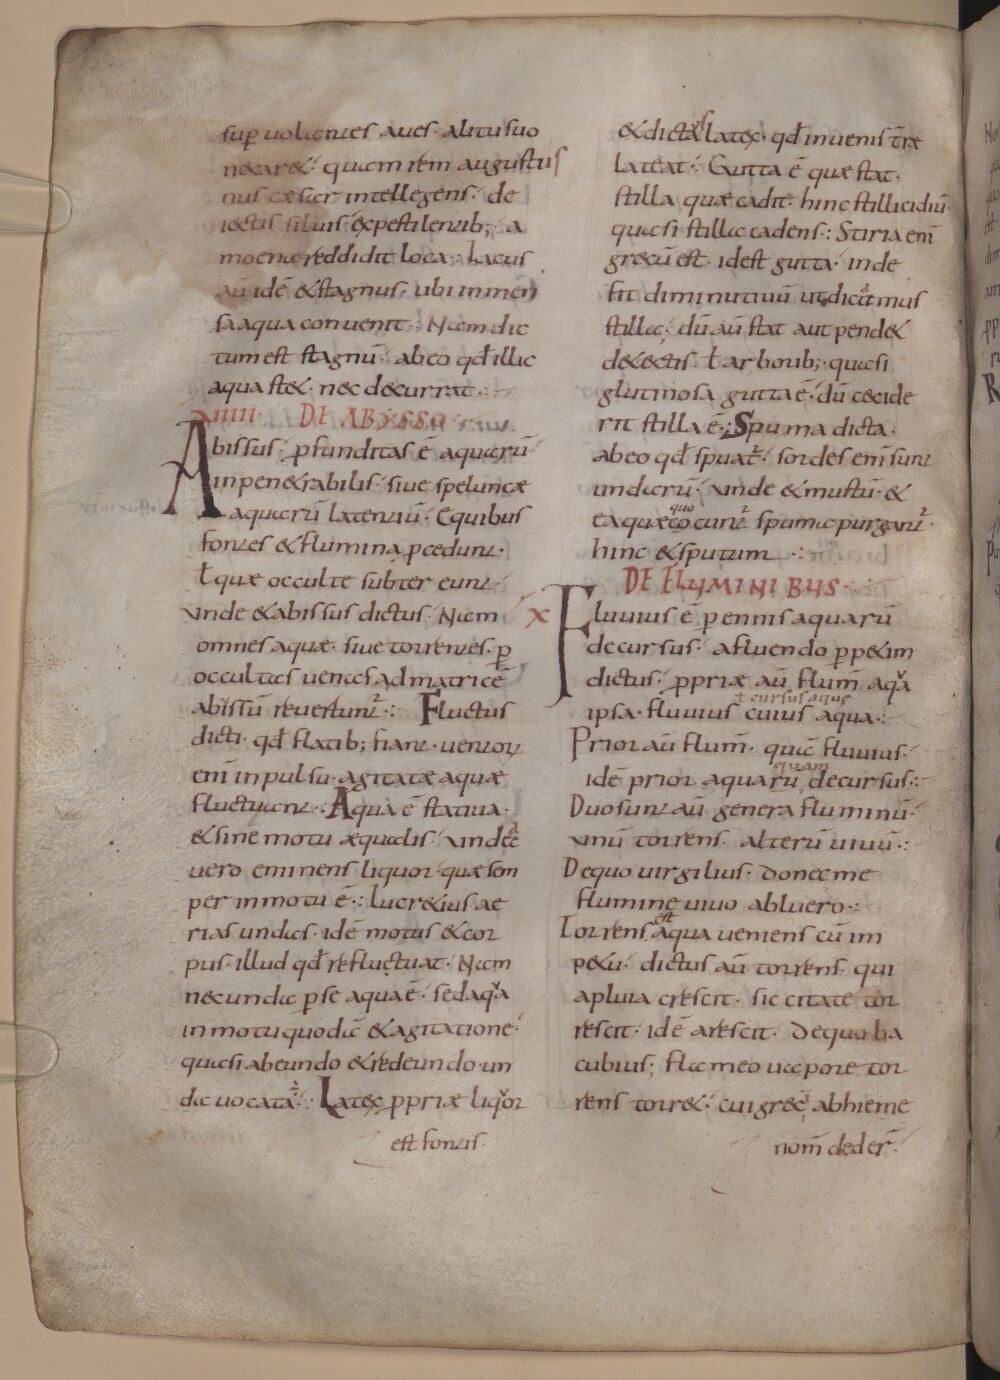 sup uolantes aues· alitu suo
necaret· quam rem augustus
nus cæsar intellegens· de
iectis siluis expestilentib; a
moena reddidit loca·: Lacus
aū idē &stagnus· ubi inmen
sa aqua conuenit·: Nam dic
tum est stagnū· ab eo qđ illic
aqua stet· nec decurrat·:
XVIIII· DE ABYSSO·
Abissus· pfunditas ē aquarū
inpenetrabilis· siue speluncæ
aquarū latentiū· E quibus
fontes & flumina pcedunt·
ł quæ occulte subter eunt·
vnde & abissus dictus· Nam
omnes aquæ· siue torrentes· p
occultas uenas ad matricē
abissū reuertunt·: Fluctus
dicti· qđ flatib; fiant· uentorū
enī inpulsu· agitatæ aquæ
fluctuant·: Aqua ē statiua·
& sine motu æqualis· vnda
uero eminens liquor quæ sem
per in motu ē·: Lucretius ae
rias undas· idē motus & cor
pus· illud qđ refluctuat· Nam
nec unda p se aqua ē· sed aqua
in motu quodā & agitatione·
quasi abeundo & redeundo· un
da uocata·: Latex ppriæ liquor
est fontis·
& dictus latex· qđ in uenis træ
lateat·: Gutta ē quæ stat·
stilla quæ cadit· hinc stillicidiū·
quasi stilla cadens·: Stiria enī
grecū est· idest gutta· inde
fit diminutiuū ut dicamus
stilla· dū aū stat aut pendet
de tectis· ł arborib; quasi
glutinosa gutta ē· dū cecide
rit stilla ē·; Spuma dicta·
ab eo qđ spuat· sordes enī sunt
undarū· vnde & mustū· &
ea quæ quo cocunt spuma purgant·
hinc & sputum·:
DE FLUMINIBUS·
X Fluuius ē pennis aquarū
decursus· a fluendo ppetim
dictus· ppriæ aū flum aqua
ł cursus aque
ipsa· fluuius cuius aqua·:
Prior aū flum· quā fluuius·
quam
idē prior aquarū decursus·:
Duo sunt aū genera fluminū·
vnū torrens· alterū uiuū·:
De quo uirgilius· donec me
flumine uiuo abluero·:
est
Torrens aqua ueniens cū im
petu· dictus aū torrens· qui
a pluia crescit· siccitate tor
rescit· idē arescit· De quo ba
cubius; flameo uapore tor
rens torret· cui grec ab hieme
nom deder·